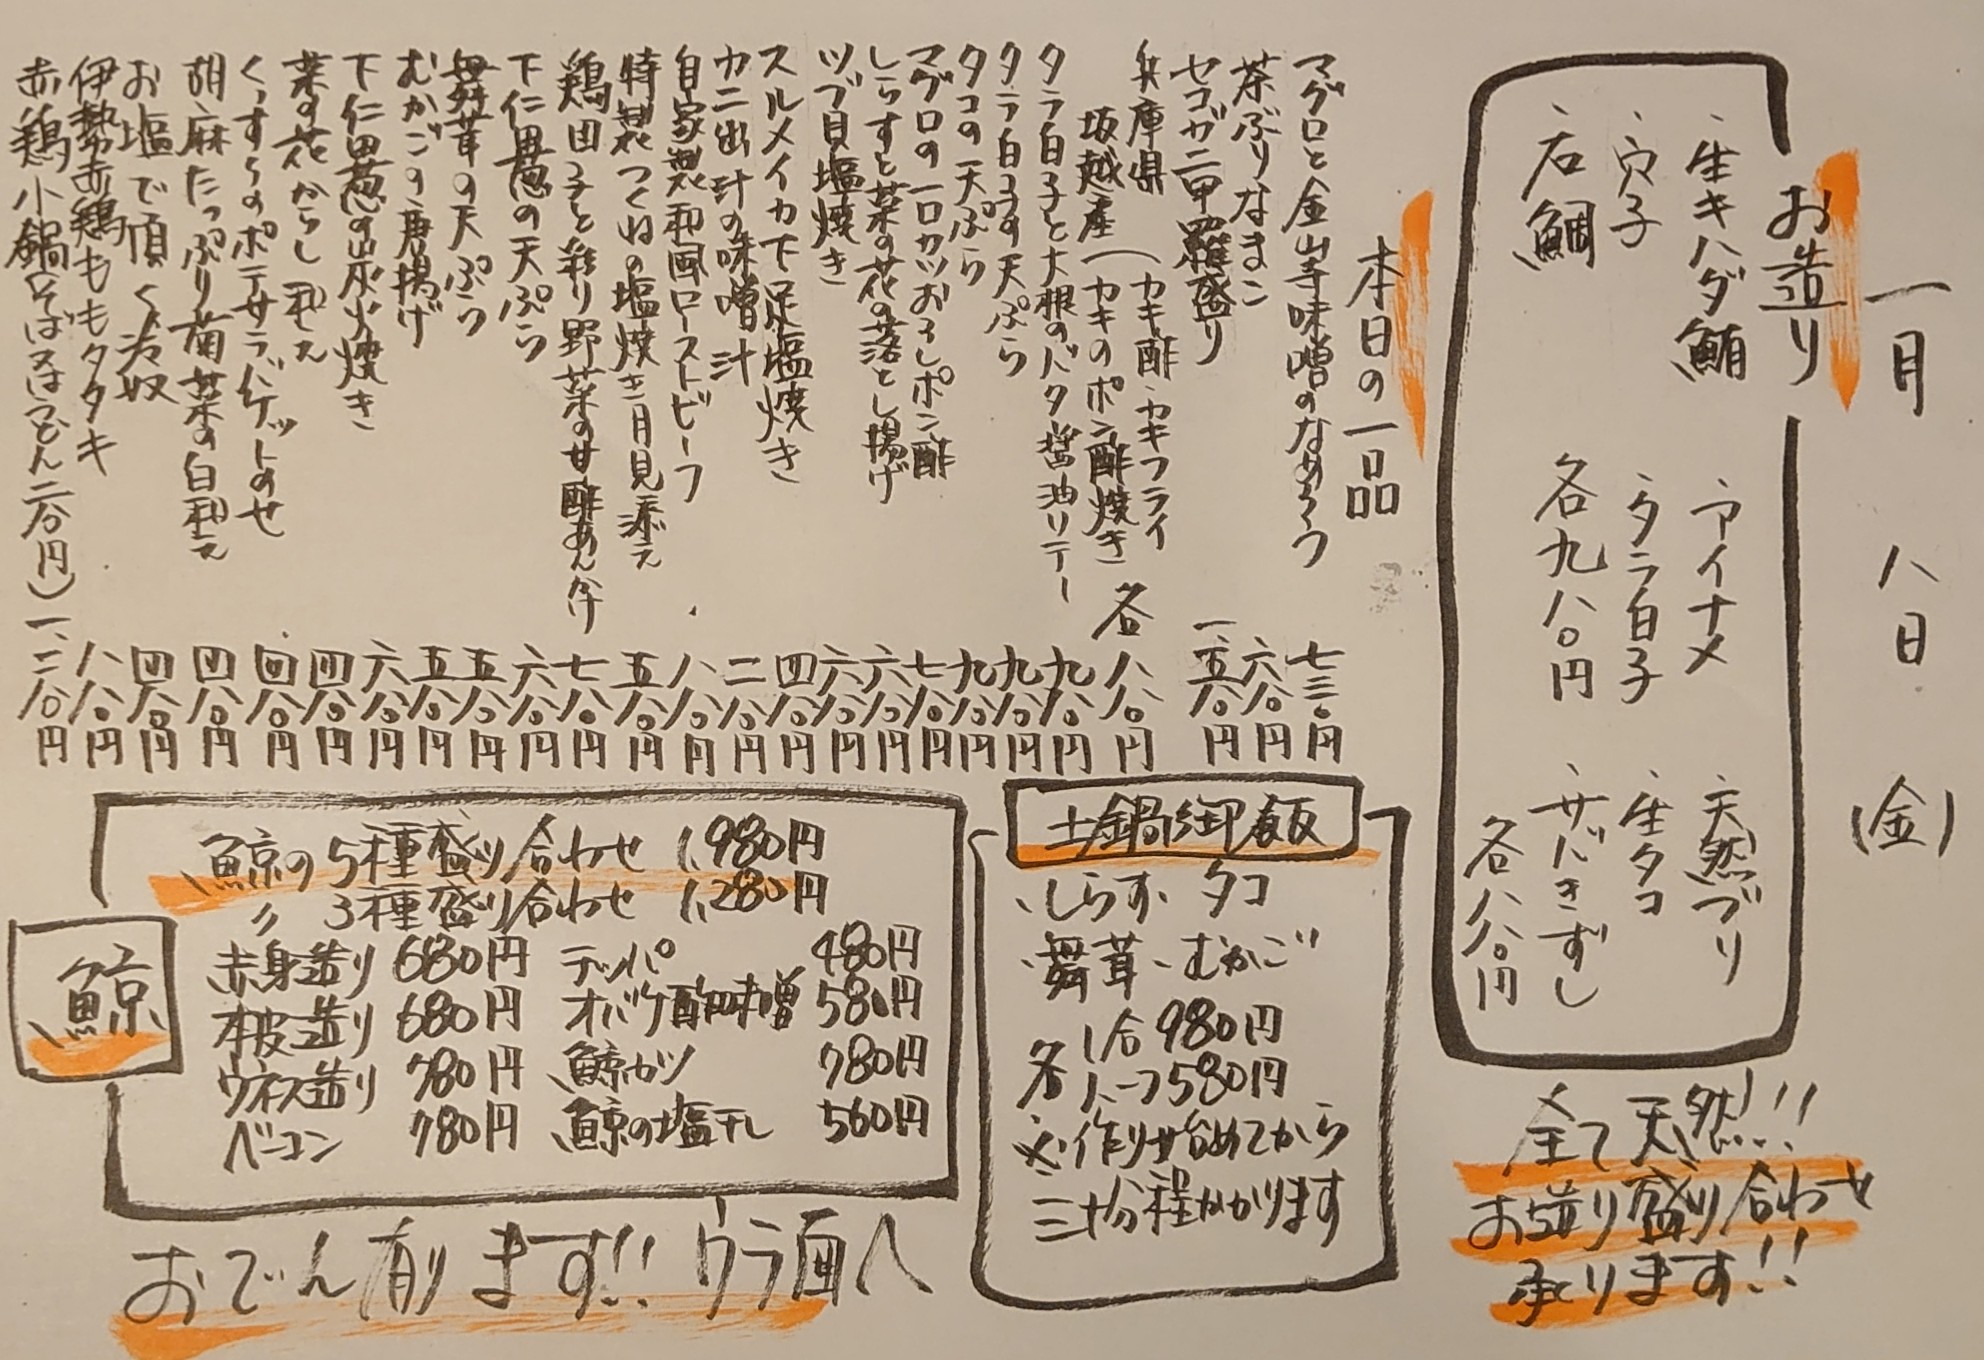 一月 八日 (金)
お造り
・生キハダ鮪 ・アイナメ ・天然ブリ
・穴子 ・タラ白子 ・生タコ
・石鯛 各九八〇円 ・サバきずし
各八八〇円
全て天然!!
お造り盛り合わせ
承ります!!
本日の一品
マグロと金山寺味噌のなめろう 七三〇円
茶ぶりなまこ 六八〇円
セコガニ甲羅盛り 一、五八〇円
兵庫県 (カキ酢・カキフライ
坂越産 (カキのポン酢焼き 各 八八〇円
タラ白子と大根のバタ醤油ソテー 九八〇円
タラ白子の天ぷら 九八〇円
タコの天ぷら 九八〇円
マグロの一口カツおろしポン酢 七八〇円
しらすと菜の花の落とし揚げ 六八〇円
ツブ貝塩焼き 六八〇円
スルメイカ下足塩焼き 四八〇円
カニ出汁の味噌汁 二八〇円
自家製和風ローストビーフ 八八〇円
特製つくねの塩焼き月見添え 五八〇円
鶏団子と彩り野菜の甘酢あんかけ 七八〇円
下仁田葱の天ぷら 六八〇円
舞茸の天ぷら 五八〇円
むかごの唐揚げ 五八〇円
下仁田葱の炭火焼き 六八〇円
菜の花からし和え 四八〇円
くんすらのポテサラバゲットのせ 四八〇円
胡麻たっぷり菊菜の白和え 四八〇円
お塩で頂く冷奴 四八〇円
伊勢赤鶏ももタタキ 八八〇円
赤鶏小鍋(そば又はうどん二八〇円) 一、二八〇円
土鍋御飯
・しらす・タコ
・舞茸・むかご
各 1合980円
ハーフ580円
※作り始めてから
三十分程かかります
鯨
鯨の5種盛り合わせ 1,980円
〃 3種盛り合わせ 1,280円
赤身造り 680円 テッパ 480円
本皮造り 680円 オバケ酢味噌 580円
ウネス造り 780円 鯨カツ 780円
ベーコン 780円 鯨の塩干し 560円
おでん有ります!! ウラ面へ